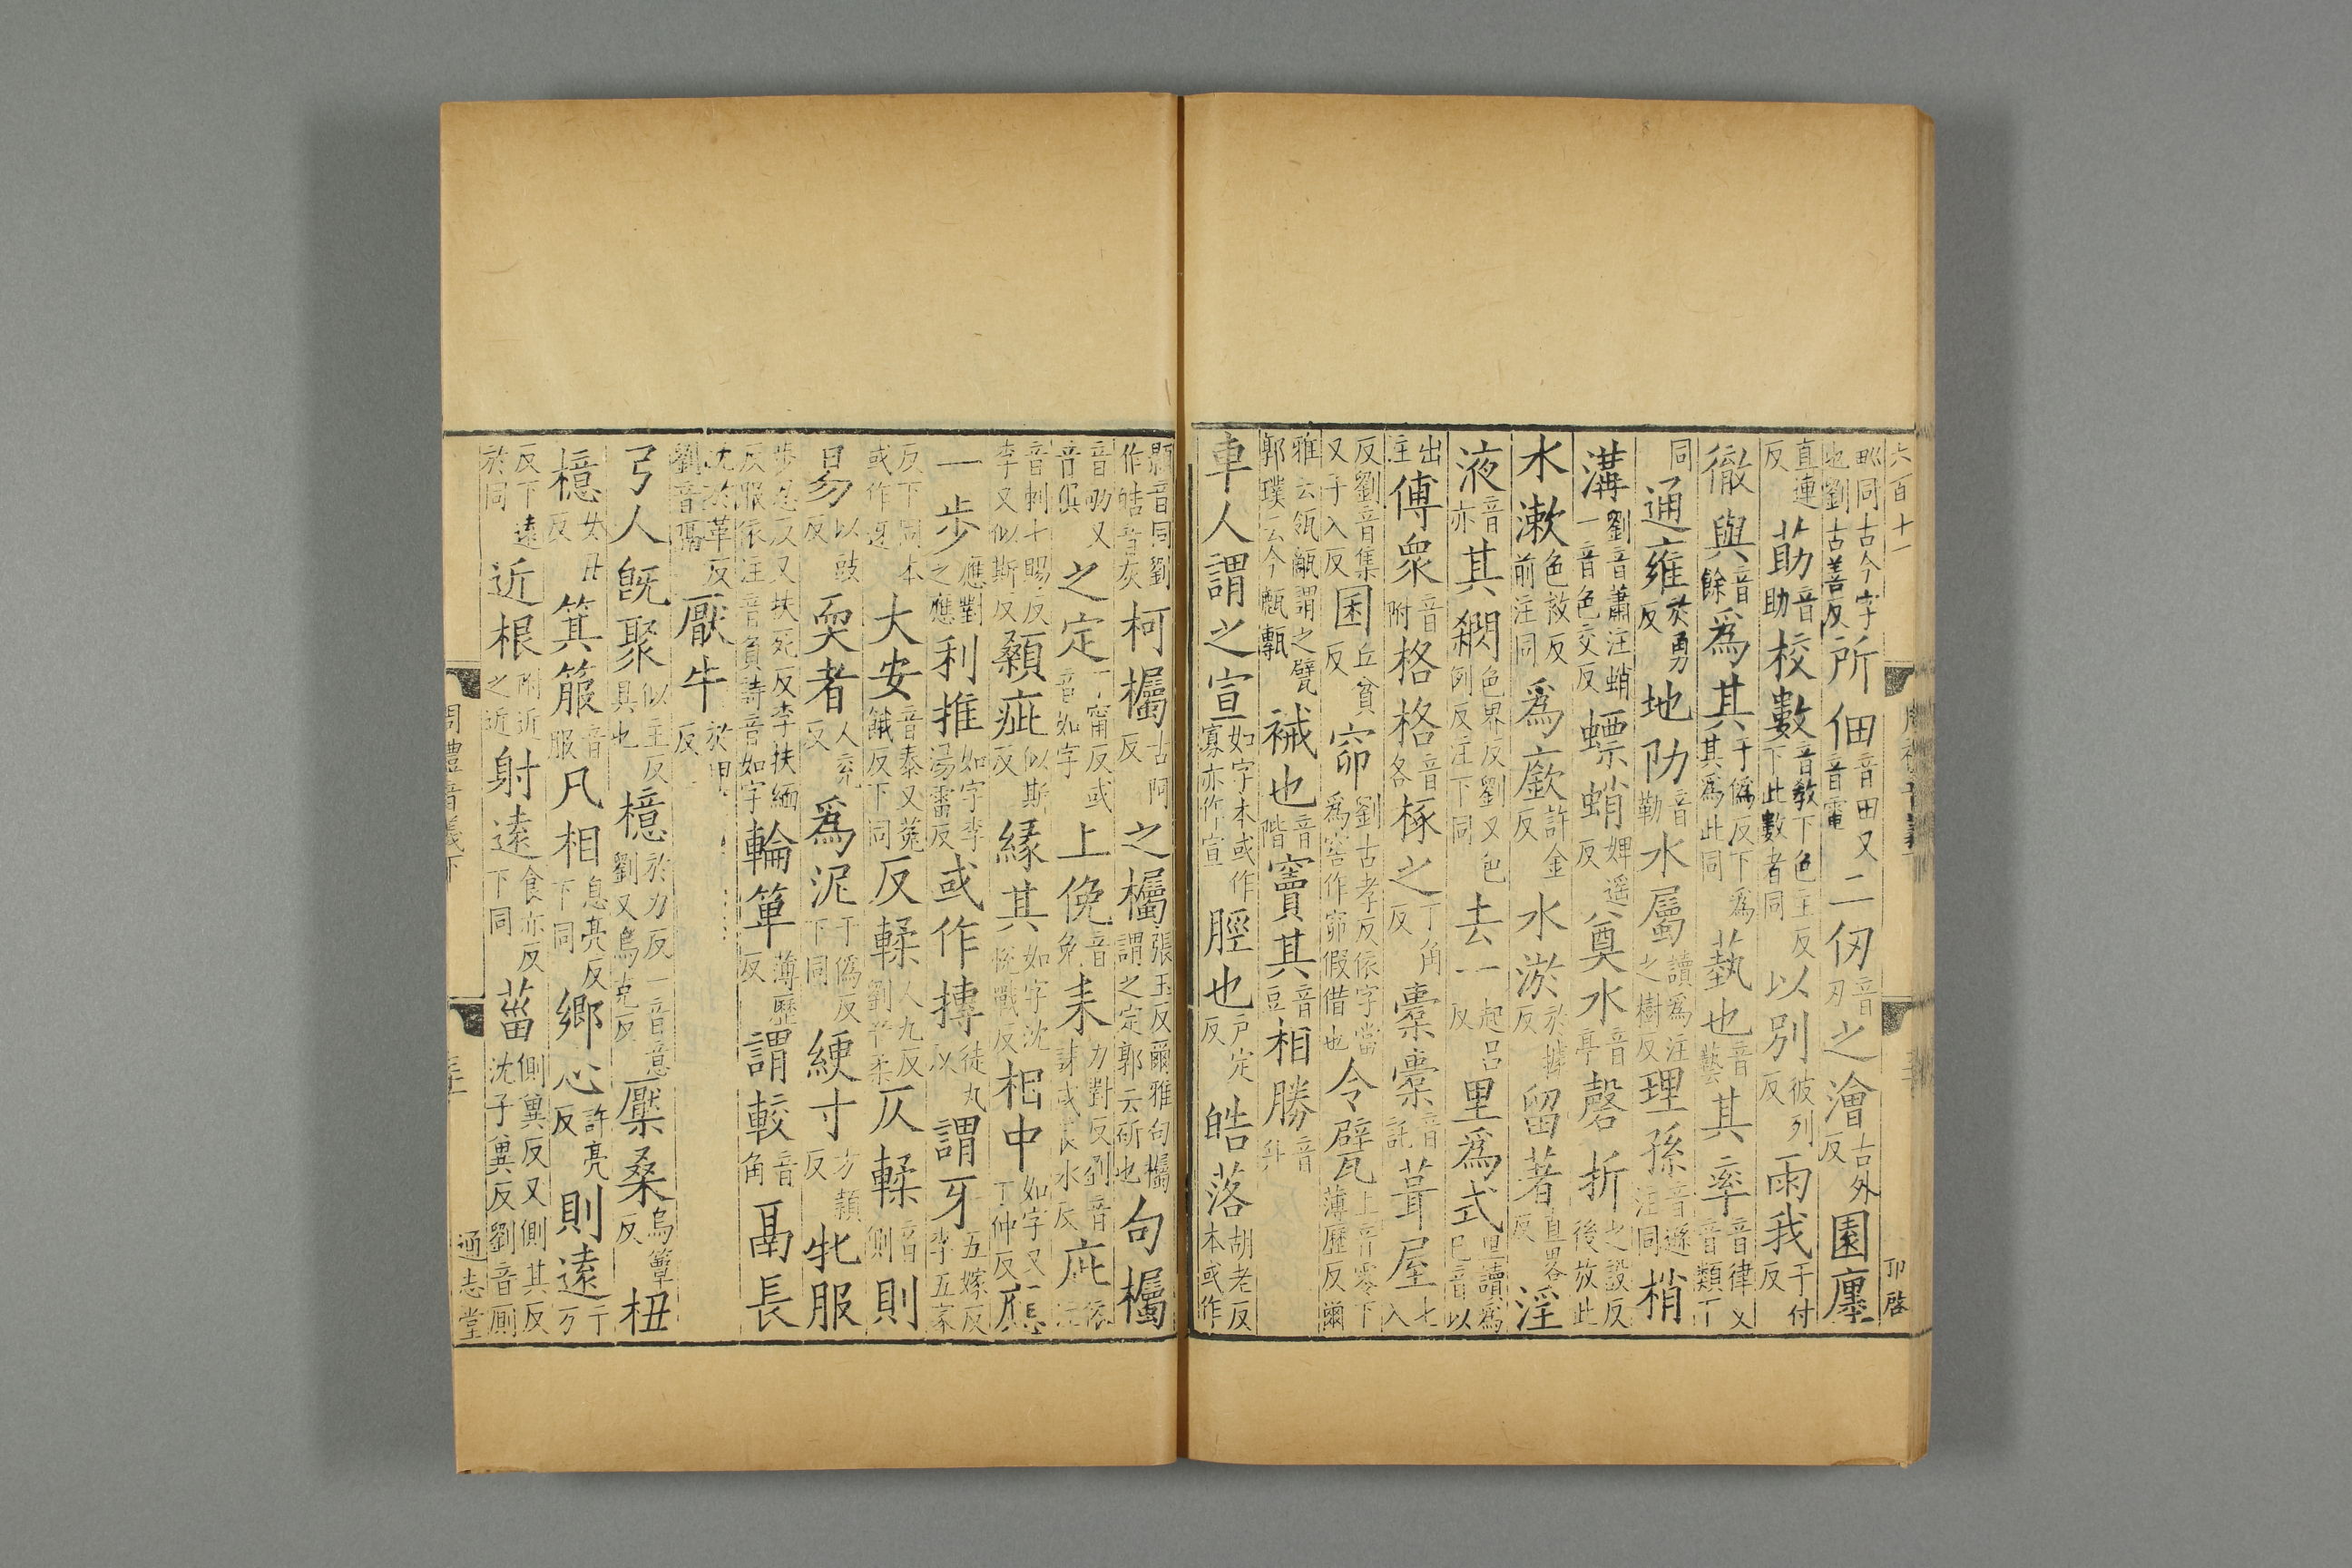 六百十一
卯啓
畎同古今字也劉古善反所佃音田又音電二仞音刃之澮古外反園廛
直連反莇音助校數音敎下色主反下此數者同以別彼列反雨我于付反
徹與音餘爲其于僞反下爲其爲此同蓺也音藝其率音律又音類丁
同通雍於勇反地阞音勒水屬讀爲注之樹反理孫音遜注同梢
溝劉音蕭注蛸一音色交反螵蛸婢遥反奠水音亭磬折之設反後放此
水漱色救反前注同爲廞許金反水淤於據反留著直畧反淫
液音亦其綱色界反劉又色例反注下同去一起呂反里爲式里讀爲巳音以
出注傅衆音附格格音各椓之丁角反橐橐音託葺屋七入
反劉音集又子入反囷丘貧反窌劉古孝反依字當爲窖作窌假借也令甓上音零下薄歷反爾
雅云瓴甋謂之甓郭璞云今㼾甎祴也音階竇其音豆相勝音升
車人謂之宣如字本或作寡亦作宣脛也戶定反皓落胡老反本或作
顥音同劉作皓音灰柯欘古阿反之欘張玉反爾雅句欘謂之定郭云斫也句欘
音劬又音俱之定丁甯反或音如字上俛音免耒力對反劉音誄或良水反庇依注
音刺七賜反李又似斯反顙疵似斯反緣其如字沈悅戰反相中如字又丁仲反應
一步應對之應利推如字李湯雷反或作摶徒丸反謂牙五嫁反李五家
反下同本或作迓大安音泰又菟餓反下同反輮人九反劉音柔仄輮音側則
易以豉反耎者人兖反爲泥于僞反下同綆寸方熲反牝服
步忍反又扶死反李扶緬反服依注音負詩音如字輪箄薄歷反謂較音角鬲長
沈於革反劉音隔厭牛反
弓人旣聚似主反具也檍於力反一音意劉又烏克反檿桑烏簟反杻
檍女丑反箕箙音服凡相息亮反下同鄉心許亮反則遠于万
反下遠於同近根附近之近射遠食亦反下同菑側冀反又側其反沈子冀反劉音厠
周禮音義下
通志堂